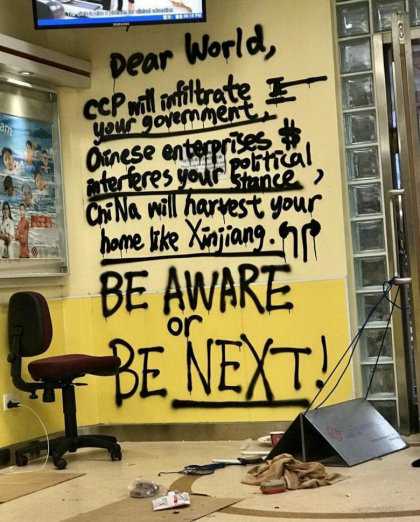 Dear World,
CCP will infiltrate
your government.
Chinese enterprises $
interferes your political
stance,
ChiNa will harvest your
home like Xinjiang.
BE AWARE
or
BE NEXT!